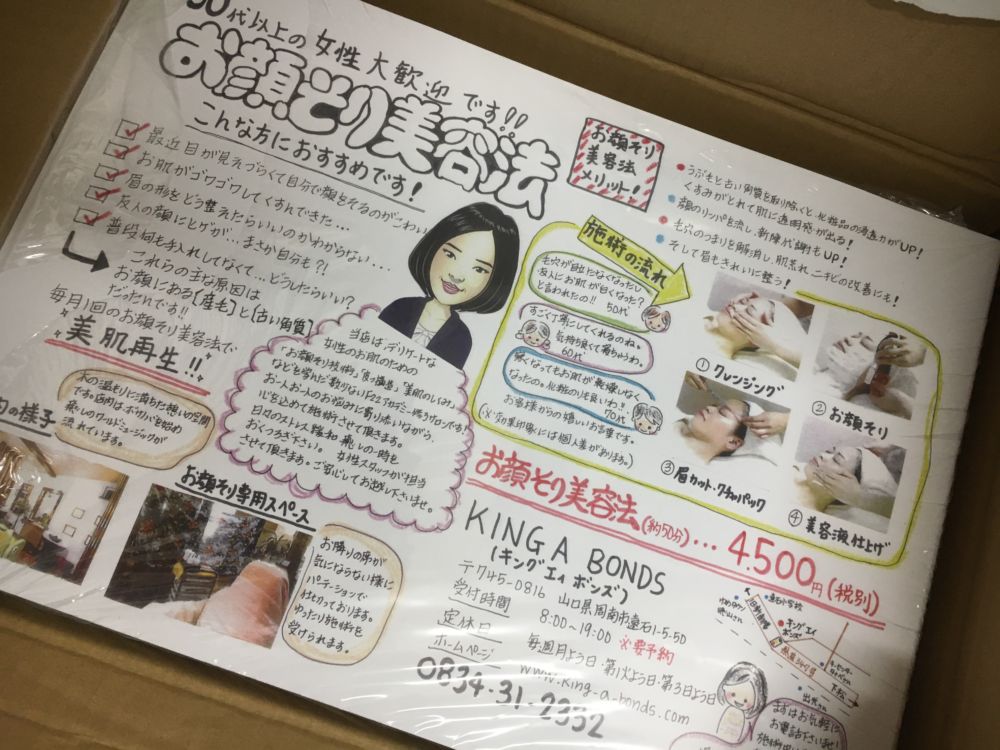 代以上の女性大歓迎です!!
お顔そり美容法
こんな方におすすめです!
最近目が見えづらくて自分で顔をそるのがこわい
お肌がゴワゴワしてくすんできた...
眉の形をどう整えたらいいのかわからない...
友人の顔にヒゲが...まさか自分も?!
普段何も手入れしてなくて...どうしたらいい?
これらの主な原因は
お顔にある[産毛]と[古い角質]
だったんです!!
毎月1回のお顔そり美容法で
美肌再生!!
お顔そり
美容法
メリット!
うぶ毛と古い角質を取り除くと、化粧品の浸透力がUP!
くすみがとれて肌に透明感が出る!
顔のリンパを流し、新陳代謝もUP!
毛穴のつまりを解消し、肌荒れ、ニキビの改善にも!
そして眉もきれいに整う!
施術の流れ
毛穴が目立たなくなったし
友人にお肌が白くなった?
と言われたの!!
50代
すごく丁寧にしてくれるのね。
気持ち良くて寝ちゃうわ。
60代
寒くなってもお肌が乾燥しなく
なったの。化粧のりも良いわ!!
70代
お客様からの嬉しいお言葉です。
(※効果印象には個人差があります。)
①クレンジング
②お顔そり
③眉カット・
④美容液仕上げ
当店は、デリケートな
女性のお肌のための
「お顔そり技術」「良い道具」「美肌のしくみ」
などを学んだ数少ない
お一人お一人のお悩みに寄り添いながら、
心を込めて施術させて頂きます。
日々のストレス緩和 癒しの一時を
おくつろぎ下さい。 女性スタッフが担当
させて頂きます。ご安心してお越し下さいませ。
木の温もりに満ちた憩いの空間
です。店内はボサノバを始め
癒しのワールドミュージックが
流れています。
の様子
お顔そり専用スペース
お隣りの席が
気にならない様に
パーテーションで
仕切っております。
ゆったり施術を
受けられます。
お顔そり美容法(約50分)...4.500円(税別)
KING A BONDS
(キングエィ ボンズ)
〒745-0816 山口県周南市遠石1-5-5D
受付時間 8:00~19:00 ※要予約
定休日 毎週月よう日・第1火よう日・第3日よう日
ホームページ www.king-a-bonds.com
0834-31-2352
遠石小学校
キングエイ
ボンズ
下松
出光さん
まずはお気軽に
お電話下さいませ